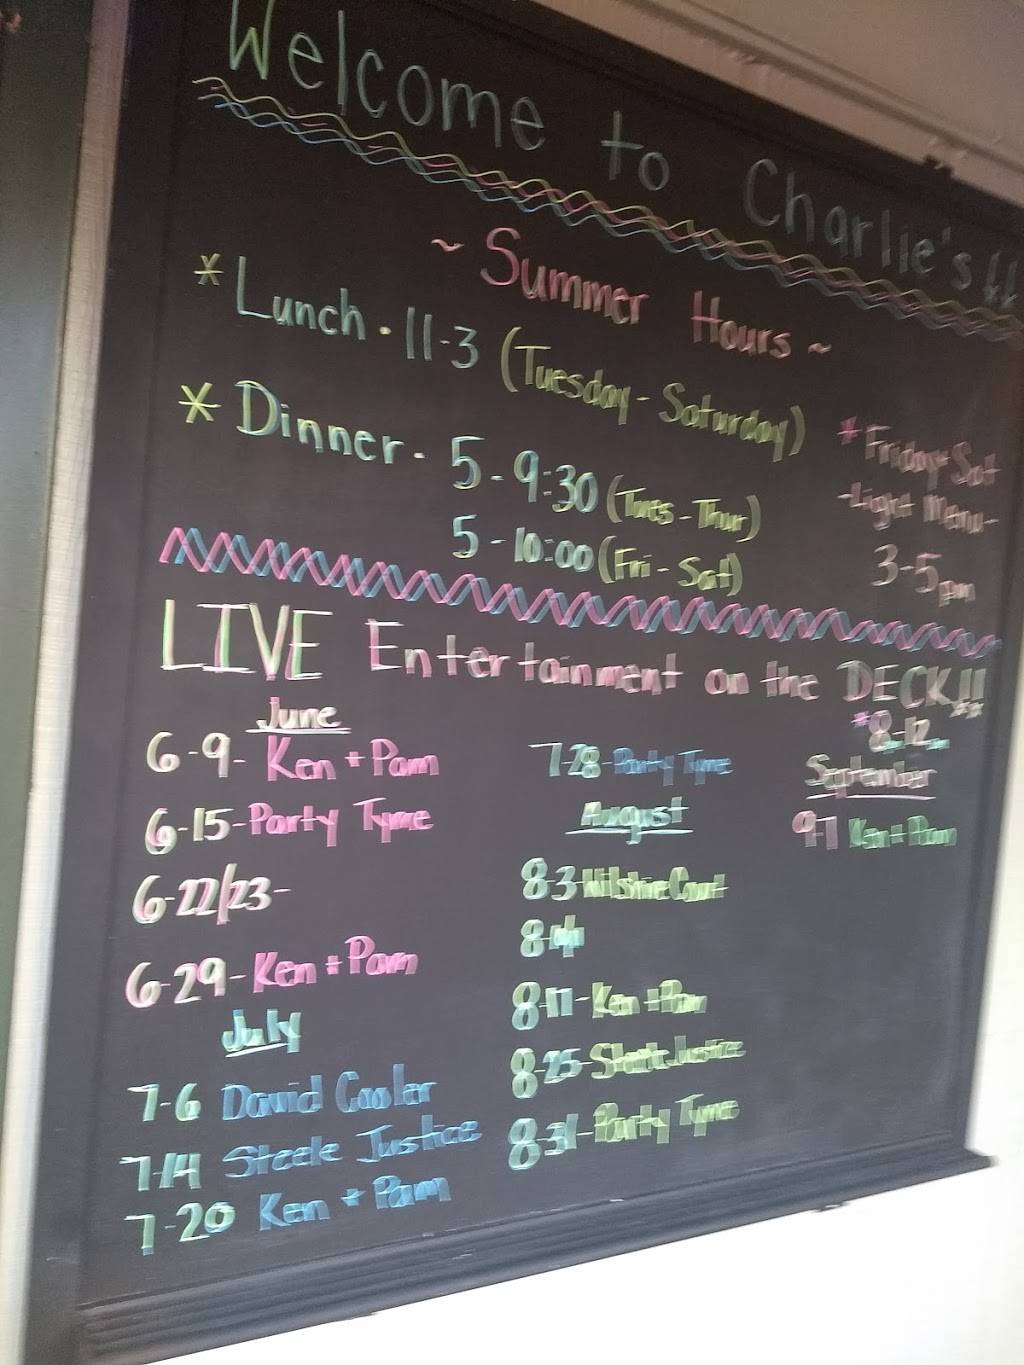 Welcome to Charlie's!!
~ Summer Hours ~
* Lunch • 11-3 (Tuesday - Saturday)
* Dinner • 5 - 9:30 (Tues - Thur)
5 - 10:00 (Fri - Sat)
* Friday-Sat
-Light Menu-
3-5pm
LIVE Entertainment on the DECK!!
*8-12
June
6-9- Ken + Pam
6-15-Party Tyme
6-22/23-
6-29- Ken + Pam
July
7-6 David Cooler
7-14 Steele Justice
7-20 Ken + Pam
7-28-Party Tyme
August
8-3 Wilshire Court
8-11- Ken + Pam
8-25- Steele Justice
8-31-Party Tyme
September
9-7 Ken + Pam